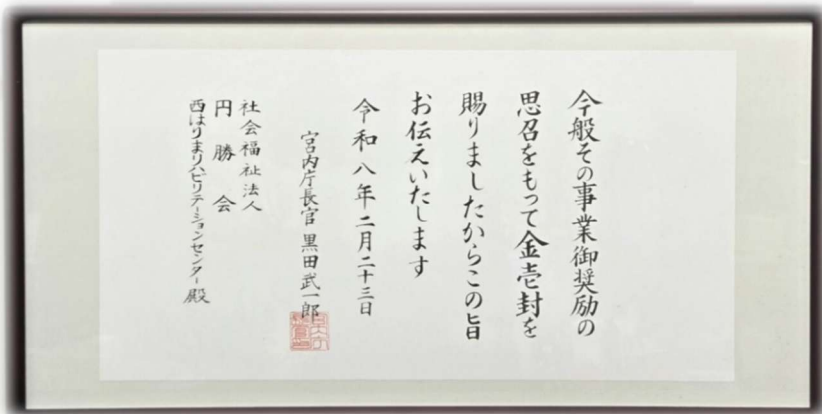 今般その事業御奨励の
思召をもって金壱封を
賜りましたからこの旨
お伝えいたします
令和八年二月二十三日
宮内庁長官 黒田武一郎
社会福祉法人
円勝会
西はりまリハビリテーションセンター殿